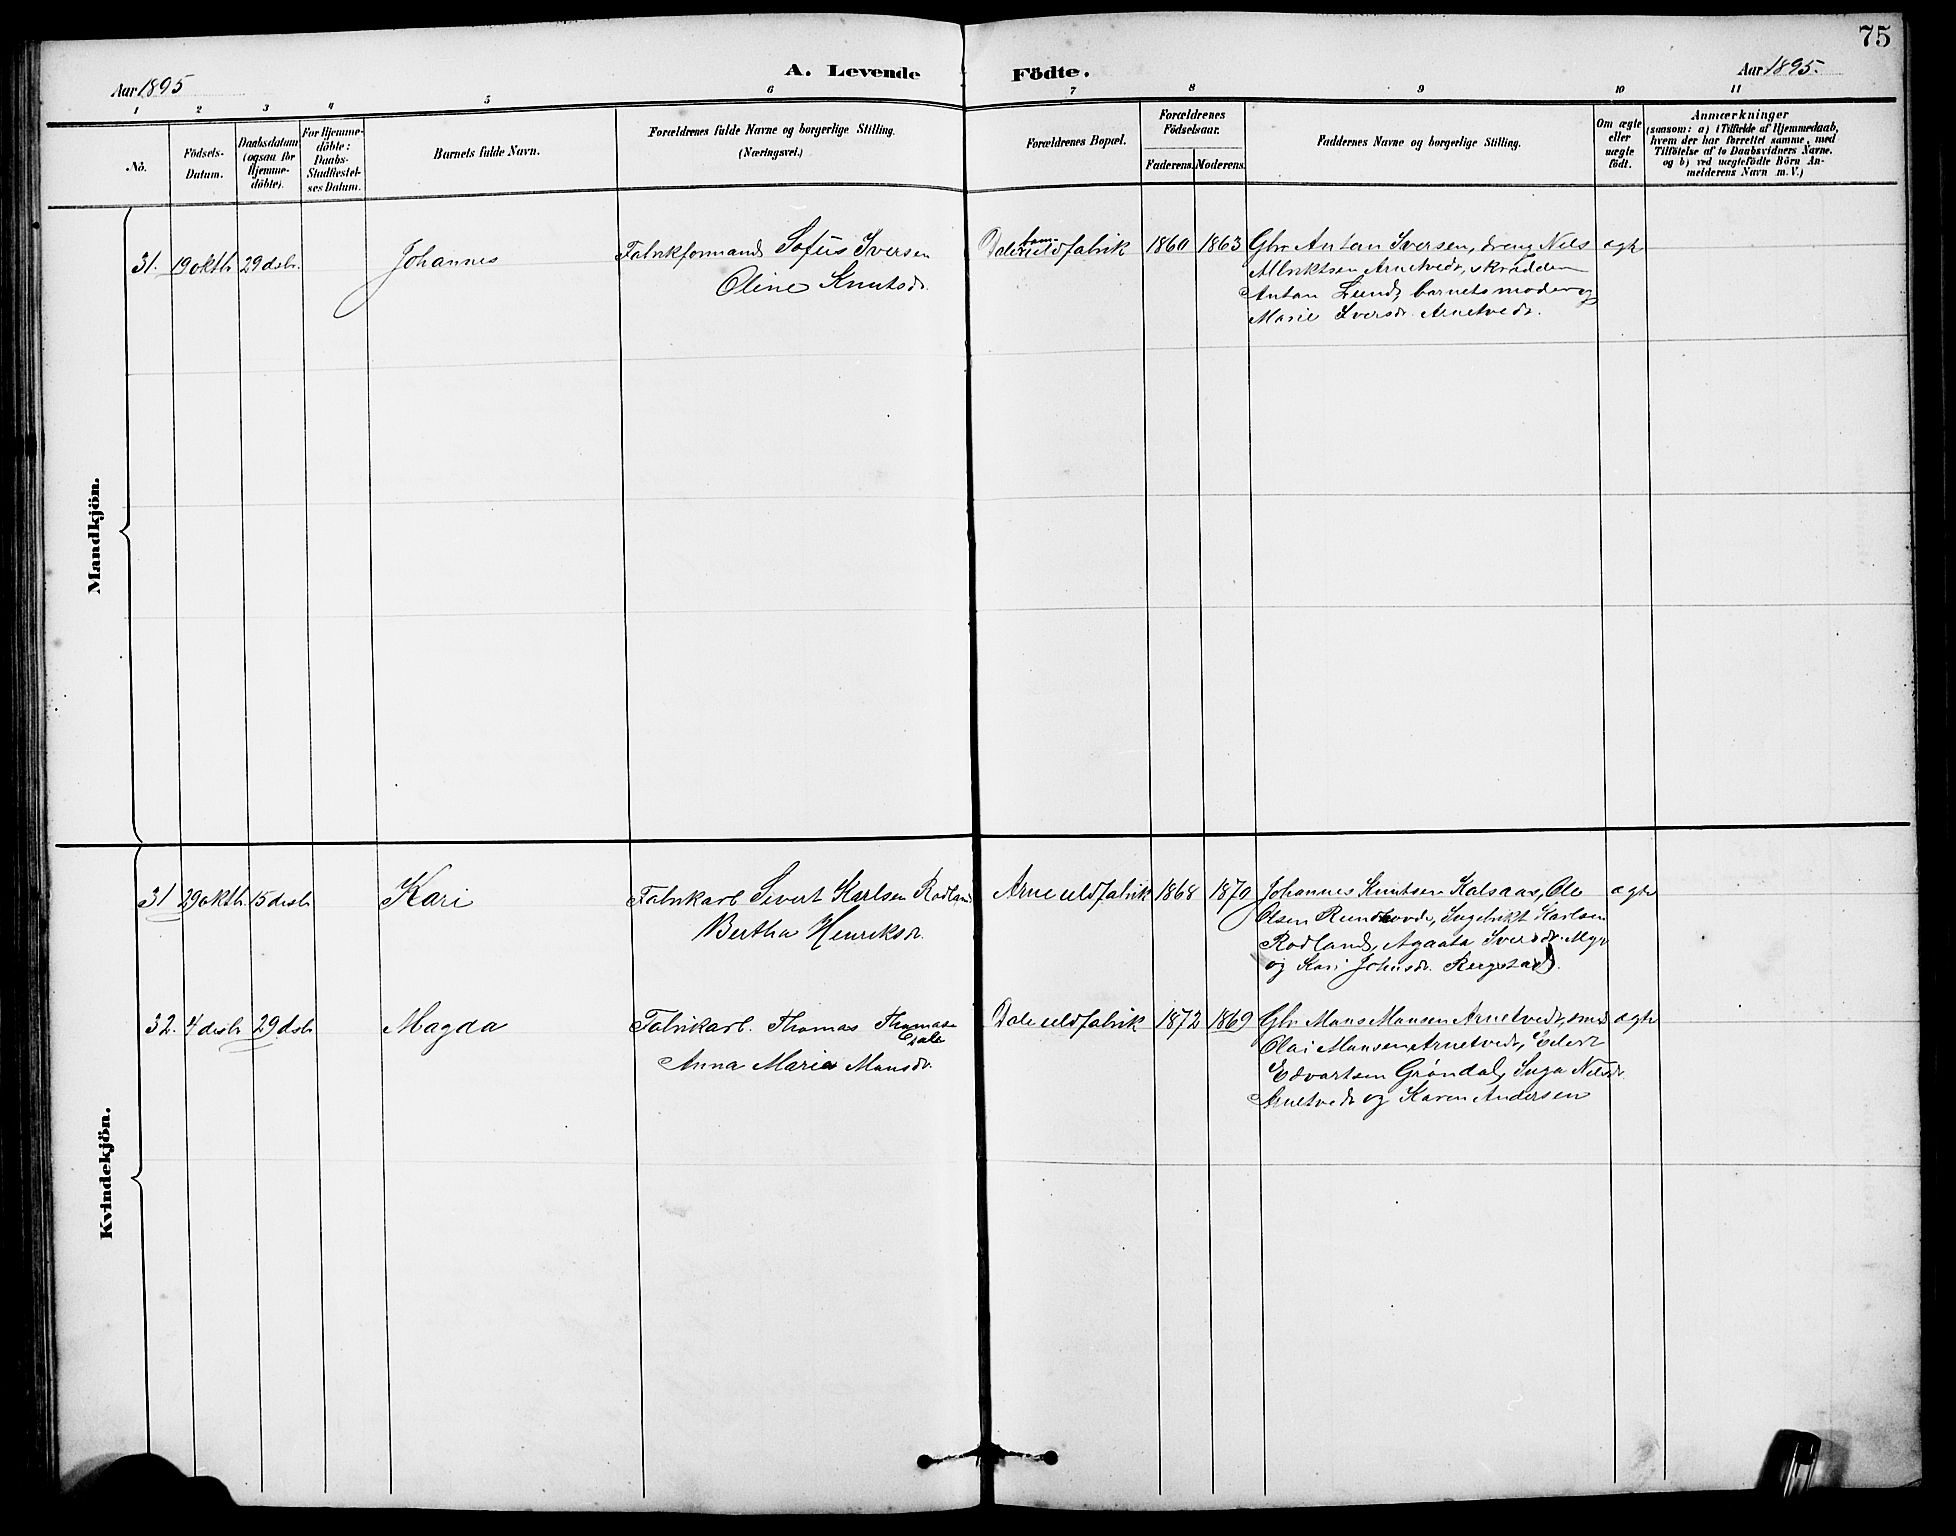 75
A. Levende Födte.
Aar 1895
Aar 1895.
1 2 3 4 5 6 7 8 9 10 11
No.
Födsels-
Datum.
Daabsdatum
(ogsaa for
Hjemme-
döbte).
For Hjemme-
döbte:
Daabs-
Stadfæstel-
ses Datum.
Barnets fulde Navn.
Forældrenes fulde Navne og borgerlige Stilling.
(Næringsvei.)
Forældrenes Bopæl.
Forældrenes
Födselsaar.
Faderens. Moderens.
Faddernes Navne og borgerlige Stilling.
Om ægte
eller
uægte
födt.
Anmærkninger
(saasom: a) i Tilfælde af Hjemmedaab,
hvem der har forrettet samme, med
Tilföielse af to Daabsvidners Navne.
og b) ved uægtefödte Börn An-
melderens Navn m. V.)
Mandkjön.
31. 19 oktb. 29 dsb. Johannes
Fabrikformand Sofus Iversen
Oline Knutsdr.
Dale uldfabrik 1860 1863
Gbr Anton Iversen, dreng Nels
Albriktsen Arnetvedt, skrædder
Anton Lund, barnets moder og
Marie Iversdr. Arnetvedt.
ægte
Kvindekjön.
31 29 oktb. 15 desb. Kari
Fabrikarb. Sivert Karlsen Rødland
Bertha Henriksdr.
Arne uldfabrik 1868 1870
Johannes Knutsen Kalsaas, Ole
Olsen Rundhovde, Ingebrikt Karlsen
Rødland, Agaata Iversdr. Myr
og Kari Johnsdr. Bergstad.
ægte
32. 4 desb. 29 dsb. Magda
Fabrikarb. Thomas Thomasen
Dale
Anna Maria Monsdr.
Dale uldfabrik 1872 1869
Gbr Mons Monsen Arnetvedt, smed
Olai Monsen Arnetvedt, Eilert
Edvartsen Grøndal, Inga Nelsdr.
Arnetvedt og Karen Andersen
ægte